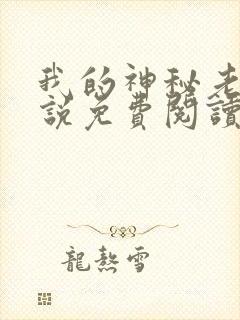 我的神秘老
說免費閱讀
龍熱雪